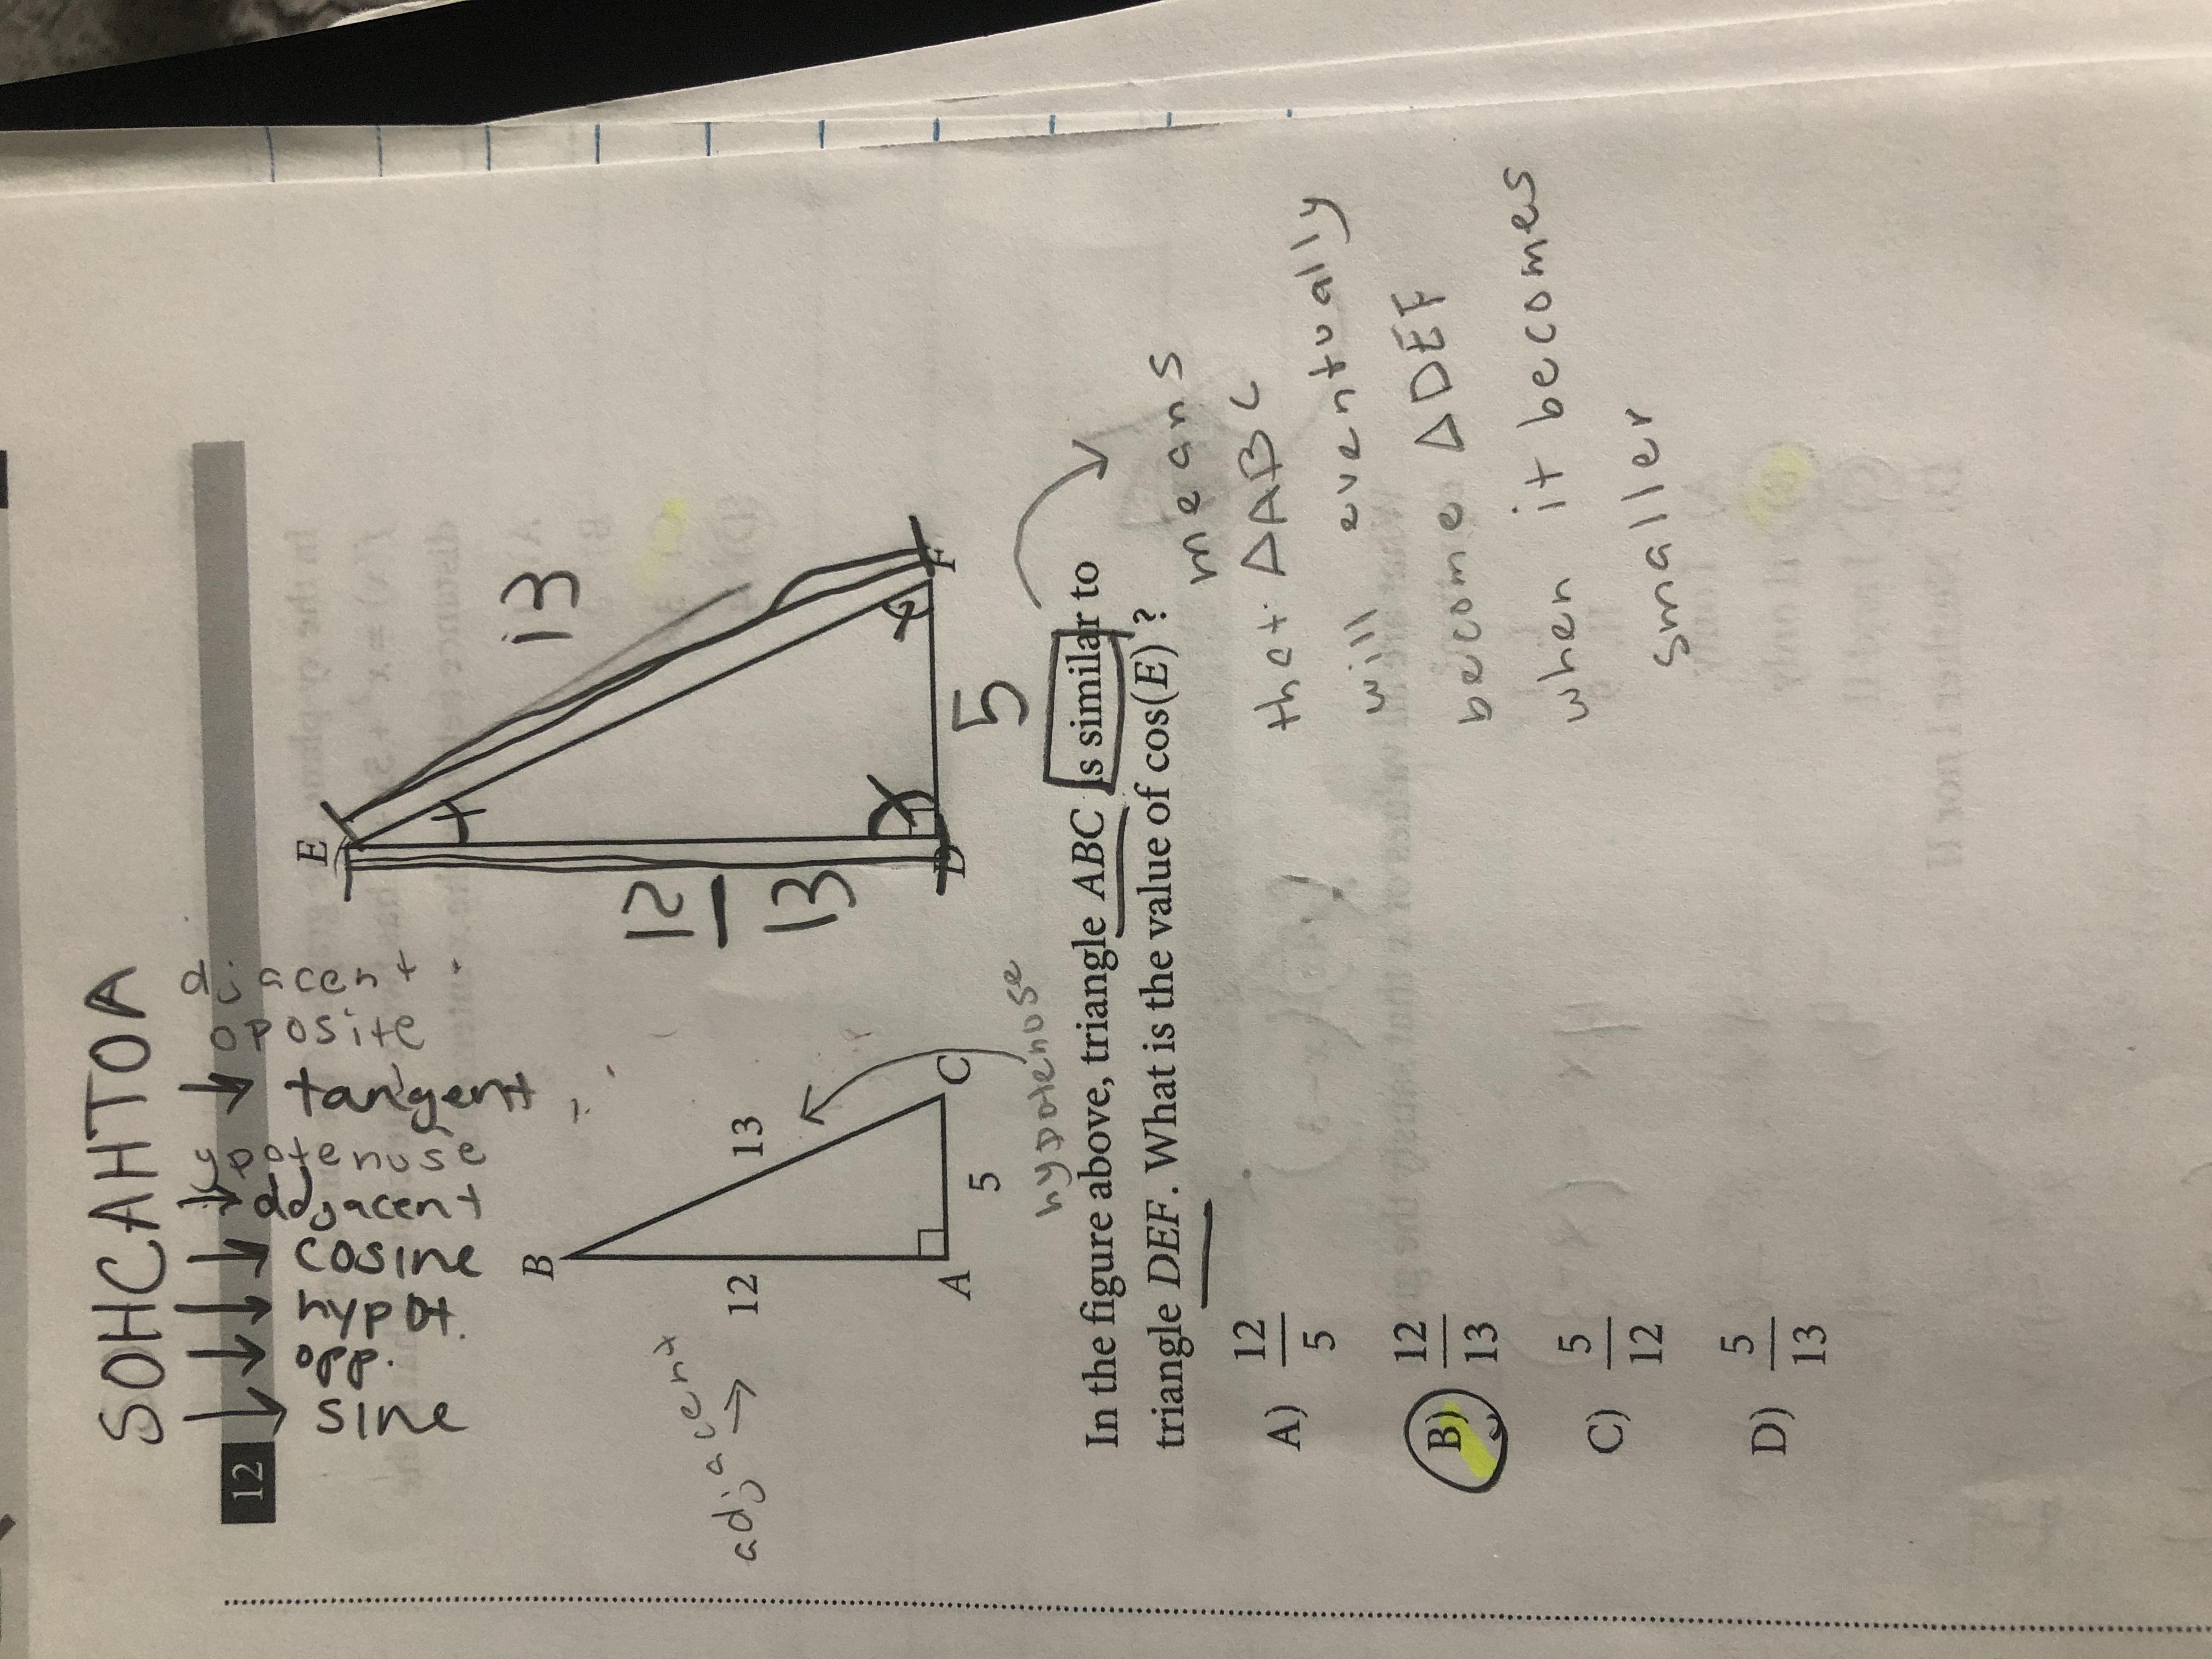 SOHCAHTOA
12
sine
opp.
hypot.
cosine
adjacent
ypotenuse
tangent
oposite
djacent
B
12
13
A
5
C
adjacent
hypotenuse
E
12
13
13
D
5
F
In the figure above, triangle ABC is similar to
triangle DEF. What is the value of cos(E)?
A) 12/5
B) 12/13
C) 5/12
D) 5/13
means
that ΔABC
will eventually
become ΔDEF
when it becomes
smaller